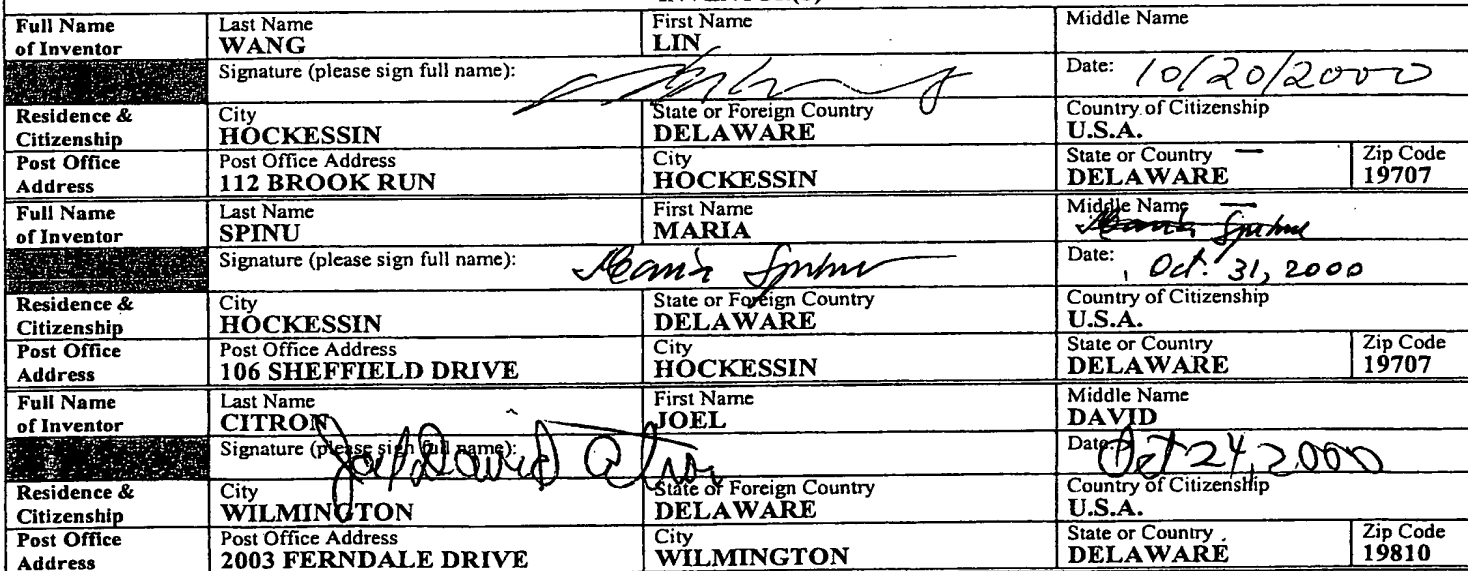 Full Name of Inventor Last Name WANG First Name LIN Middle Name
Signature (please sign full name): Date: 10/20/2000
Residence & Citizenship City HOCKESSIN State or Foreign Country DELAWARE Country of Citizenship U.S.A.
Post Office Address Post Office Address 112 BROOK RUN City HOCKESSIN State or Country DELAWARE Zip Code 19707
Full Name of Inventor Last Name SPINU First Name MARIA Middle Name Maria Spinu
Signature (please sign full name): Maria Spinu Date: Oct. 31, 2000
Residence & Citizenship City HOCKESSIN State or Foreign Country DELAWARE Country of Citizenship U.S.A.
Post Office Address Post Office Address 106 SHEFFIELD DRIVE City HOCKESSIN State or Country DELAWARE Zip Code 19707
Full Name of Inventor Last Name CITRON First Name JOEL Middle Name DAVID
Signature (please sign full name): Joel David Citron Date: Oct 24, 2000
Residence & Citizenship City WILMINGTON State or Foreign Country DELAWARE Country of Citizenship U.S.A.
Post Office Address Post Office Address 2003 FERNDALE DRIVE City WILMINGTON State or Country DELAWARE Zip Code 19810